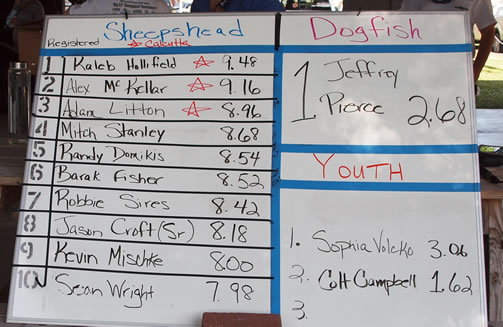 Sheepshead
Registered ☆ Calcutta
1 Kaleb Hollifield ☆ 9.48
2 Alex McKellar ☆ 9.16
3 Adam Litton ☆ 8.96
4 Mitch Stanley 8.68
5 Randy Domikis 8.54
6 Barak Fisher 8.52
7 Robbie Sires 8.42
8 Jason Croft (Sr) 8.18
9 Kevin Mischke 8.00
10 Sean Wright 7.98
Dogfish
1 Jeffrey
Pierce 2.68
YOUTH
1. Sophia Volcko 3.06
2. Colt Campbell 1.62
3.